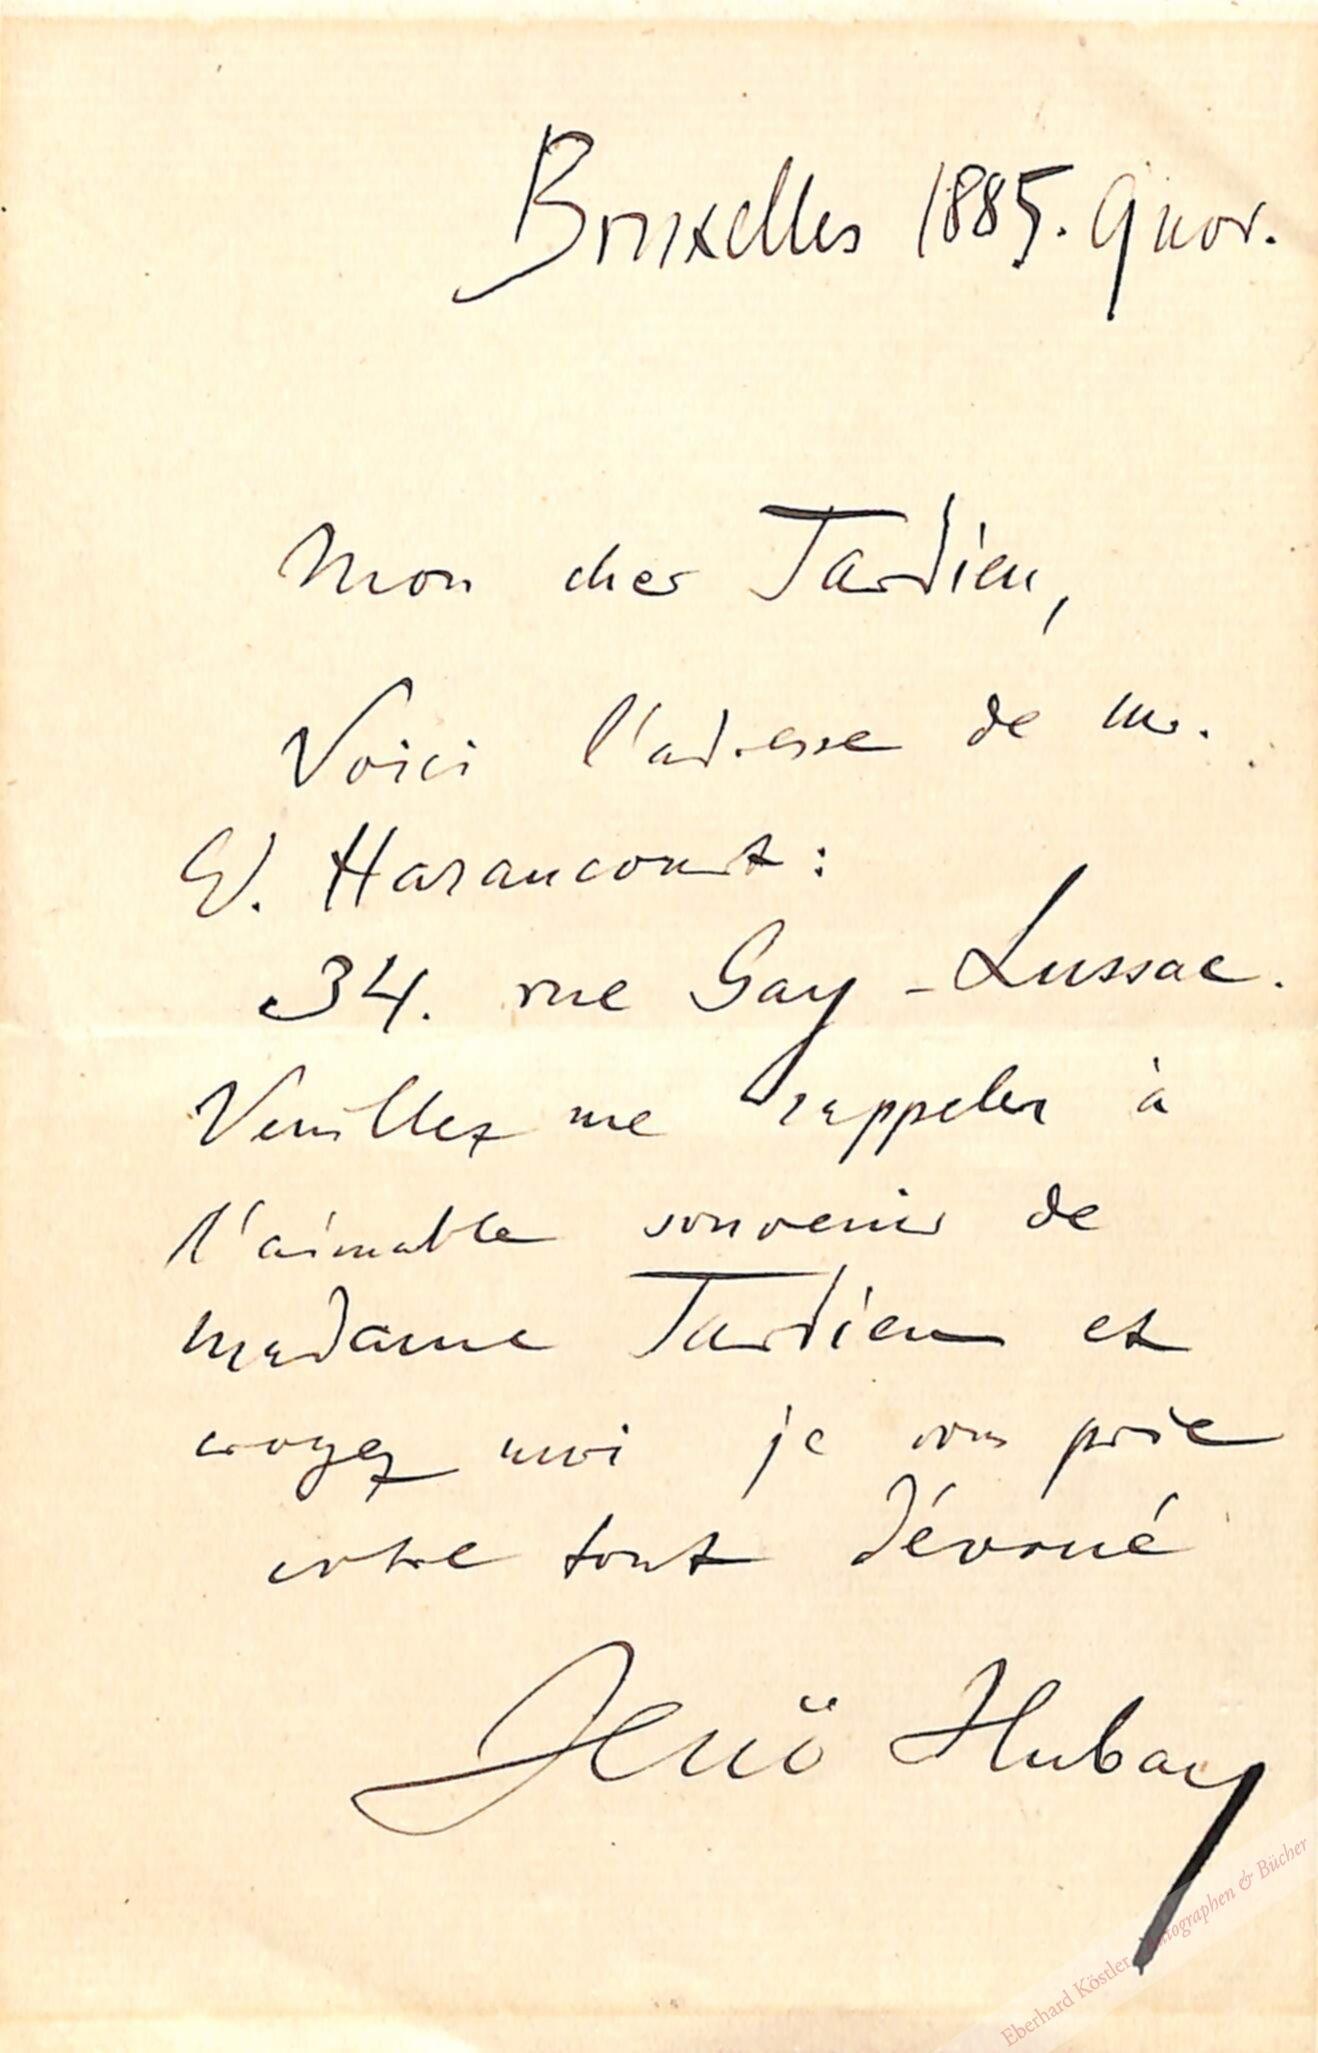 Bruxelles 1885. 9 nov.
Mon cher Tardieu,
Voici l'adresse de Mr.
E. Haraucourt :
34. rue Gay-Lussac.
Veuillez me rappeler à
l'aimable souvenir de
madame Tardieu et
croyez moi je vous prie
votre tout dévoué
Jenö Hubay
Eberhard Köstler Autographen & Bücher